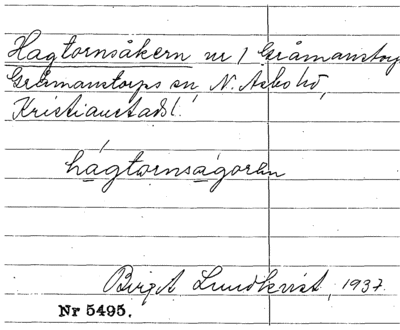 Hagtornsåkern nr 1 Gråmanstorp
Gråmanstorps sn, N. Åsbo hd,
Kristianstads l.
hágtornsågorən
Birgit Lundkvist, 1937.
Nr 5495.